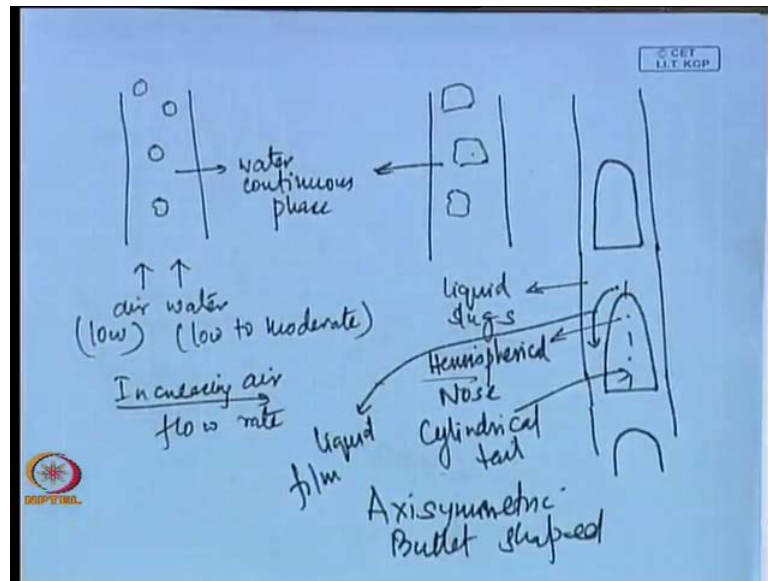 © CET
I.I.T. KGP
water
continuous
phase
air water
(low) (low to moderate)
Increasing air
flow rate
liquid
slugs
Hemispherical
Nose
Cylindrical
tail
liquid
film
Axisymmetric
Bullet shaped
NPTEL